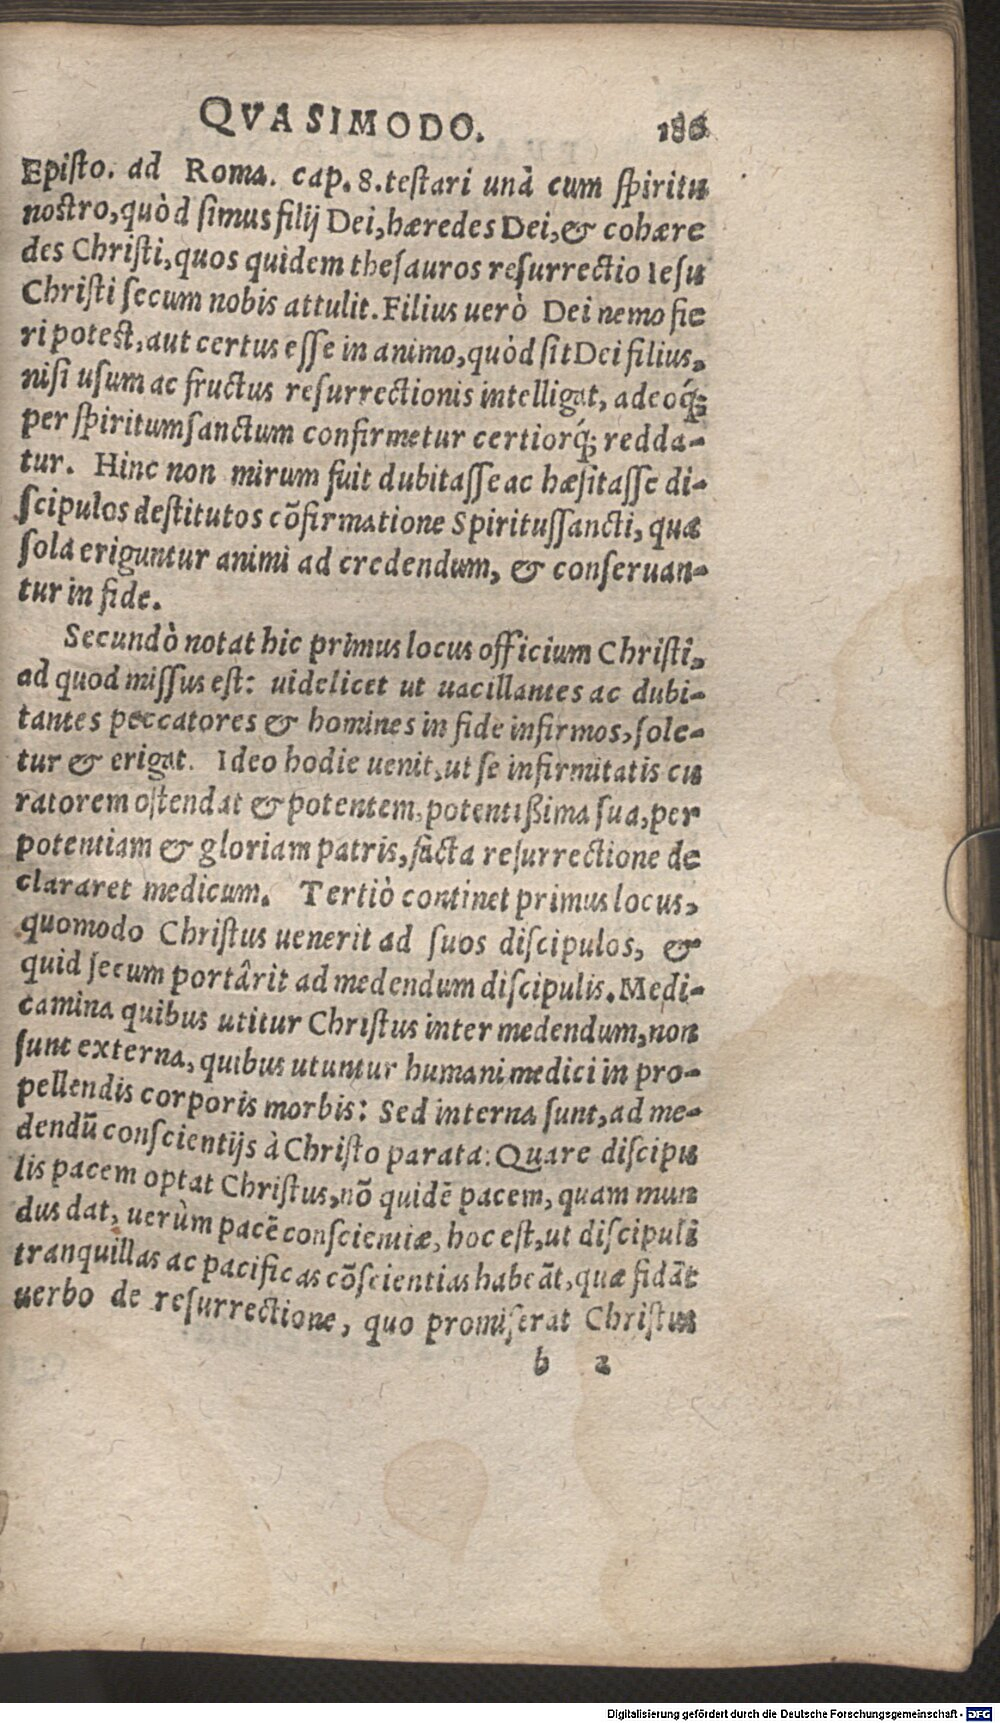 QVASIMODO. 186
Episto. ad Roma. cap. 8. testari unà cum spiritu
nostro, quòd simus filij Dei, hæredes Dei, & cohære
des Christi, quos quidem thesauros resurrectio Iesu
Christi secum nobis attulit. Filius uerò Dei nemo fie
ri potest, aut certus esse in animo, quòd sit Dei filius,
nisi usum ac fructus resurrectionis intelligat, adeoq́;
per spiritumsanctum confirmetur certiorq́; redda-
tur. Hinc non mirum fuit dubitasse ac hæsitasse di-
scipulos destitutos cõfirmatione Spiritussancti, qua
sola eriguntur animi ad credendum, & conseruan-
tur in fide.
Secundò notat hic primus locus officium Christi,
ad quod missus est: uidelicet ut uacillantes ac dubi-
tantes peccatores & homines in fide infirmos, sole-
tur & erigat. Ideo hodie uenit, ut se infirmitatis cu
ratorem ostendat & potentem, potentißima sua, per
potentiam & gloriam patris, facta resurrectione de
clararet medicum. Tertiò continet primus locus,
quomodo Christus uenerit ad suos discipulos, &
quid secum portârit ad medendum discipulis. Medi-
camina quibus utitur Christus inter medendum, non
sunt externa, quibus utuntur humani medici in pro-
pellendis corporis morbis: Sed interna sunt, ad me-
dendũ conscientijs à Christo parata: Quare discipu
lis pacem optat Christus, nõ quidẽ pacem, quam mun
dus dat, uerùm pacẽ conscientiæ, hoc est, ut discipuli
tranquillas ac pacificas cõscientias habeãt, quæ fidãt
uerbo de resurrectione, quo promiserat Christus
b 2
Digitalisierung gefördert durch die Deutsche Forschungsgemeinschaft - DFG